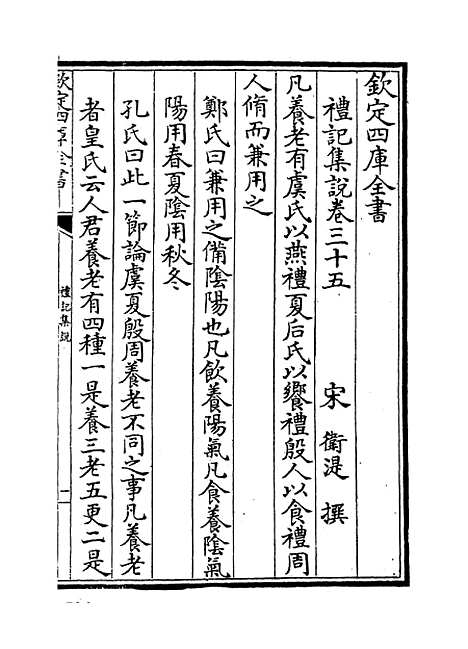 欽定四庫全書
禮記集說卷三十五　宋　衛湜　撰
凡養老有虞氏以燕禮夏后氏以饗禮殷人以食禮周
人脩而兼用之
鄭氏曰兼用之備陰陽也凡飲養陽氣凡食養陰氣
陽用春夏陰用秋冬
孔氏曰此一節論虞夏殷周養老不同之事凡養老
者皇氏云人君養老有四種一是養三老五更二是
欽定四庫全書
禮記集說
一